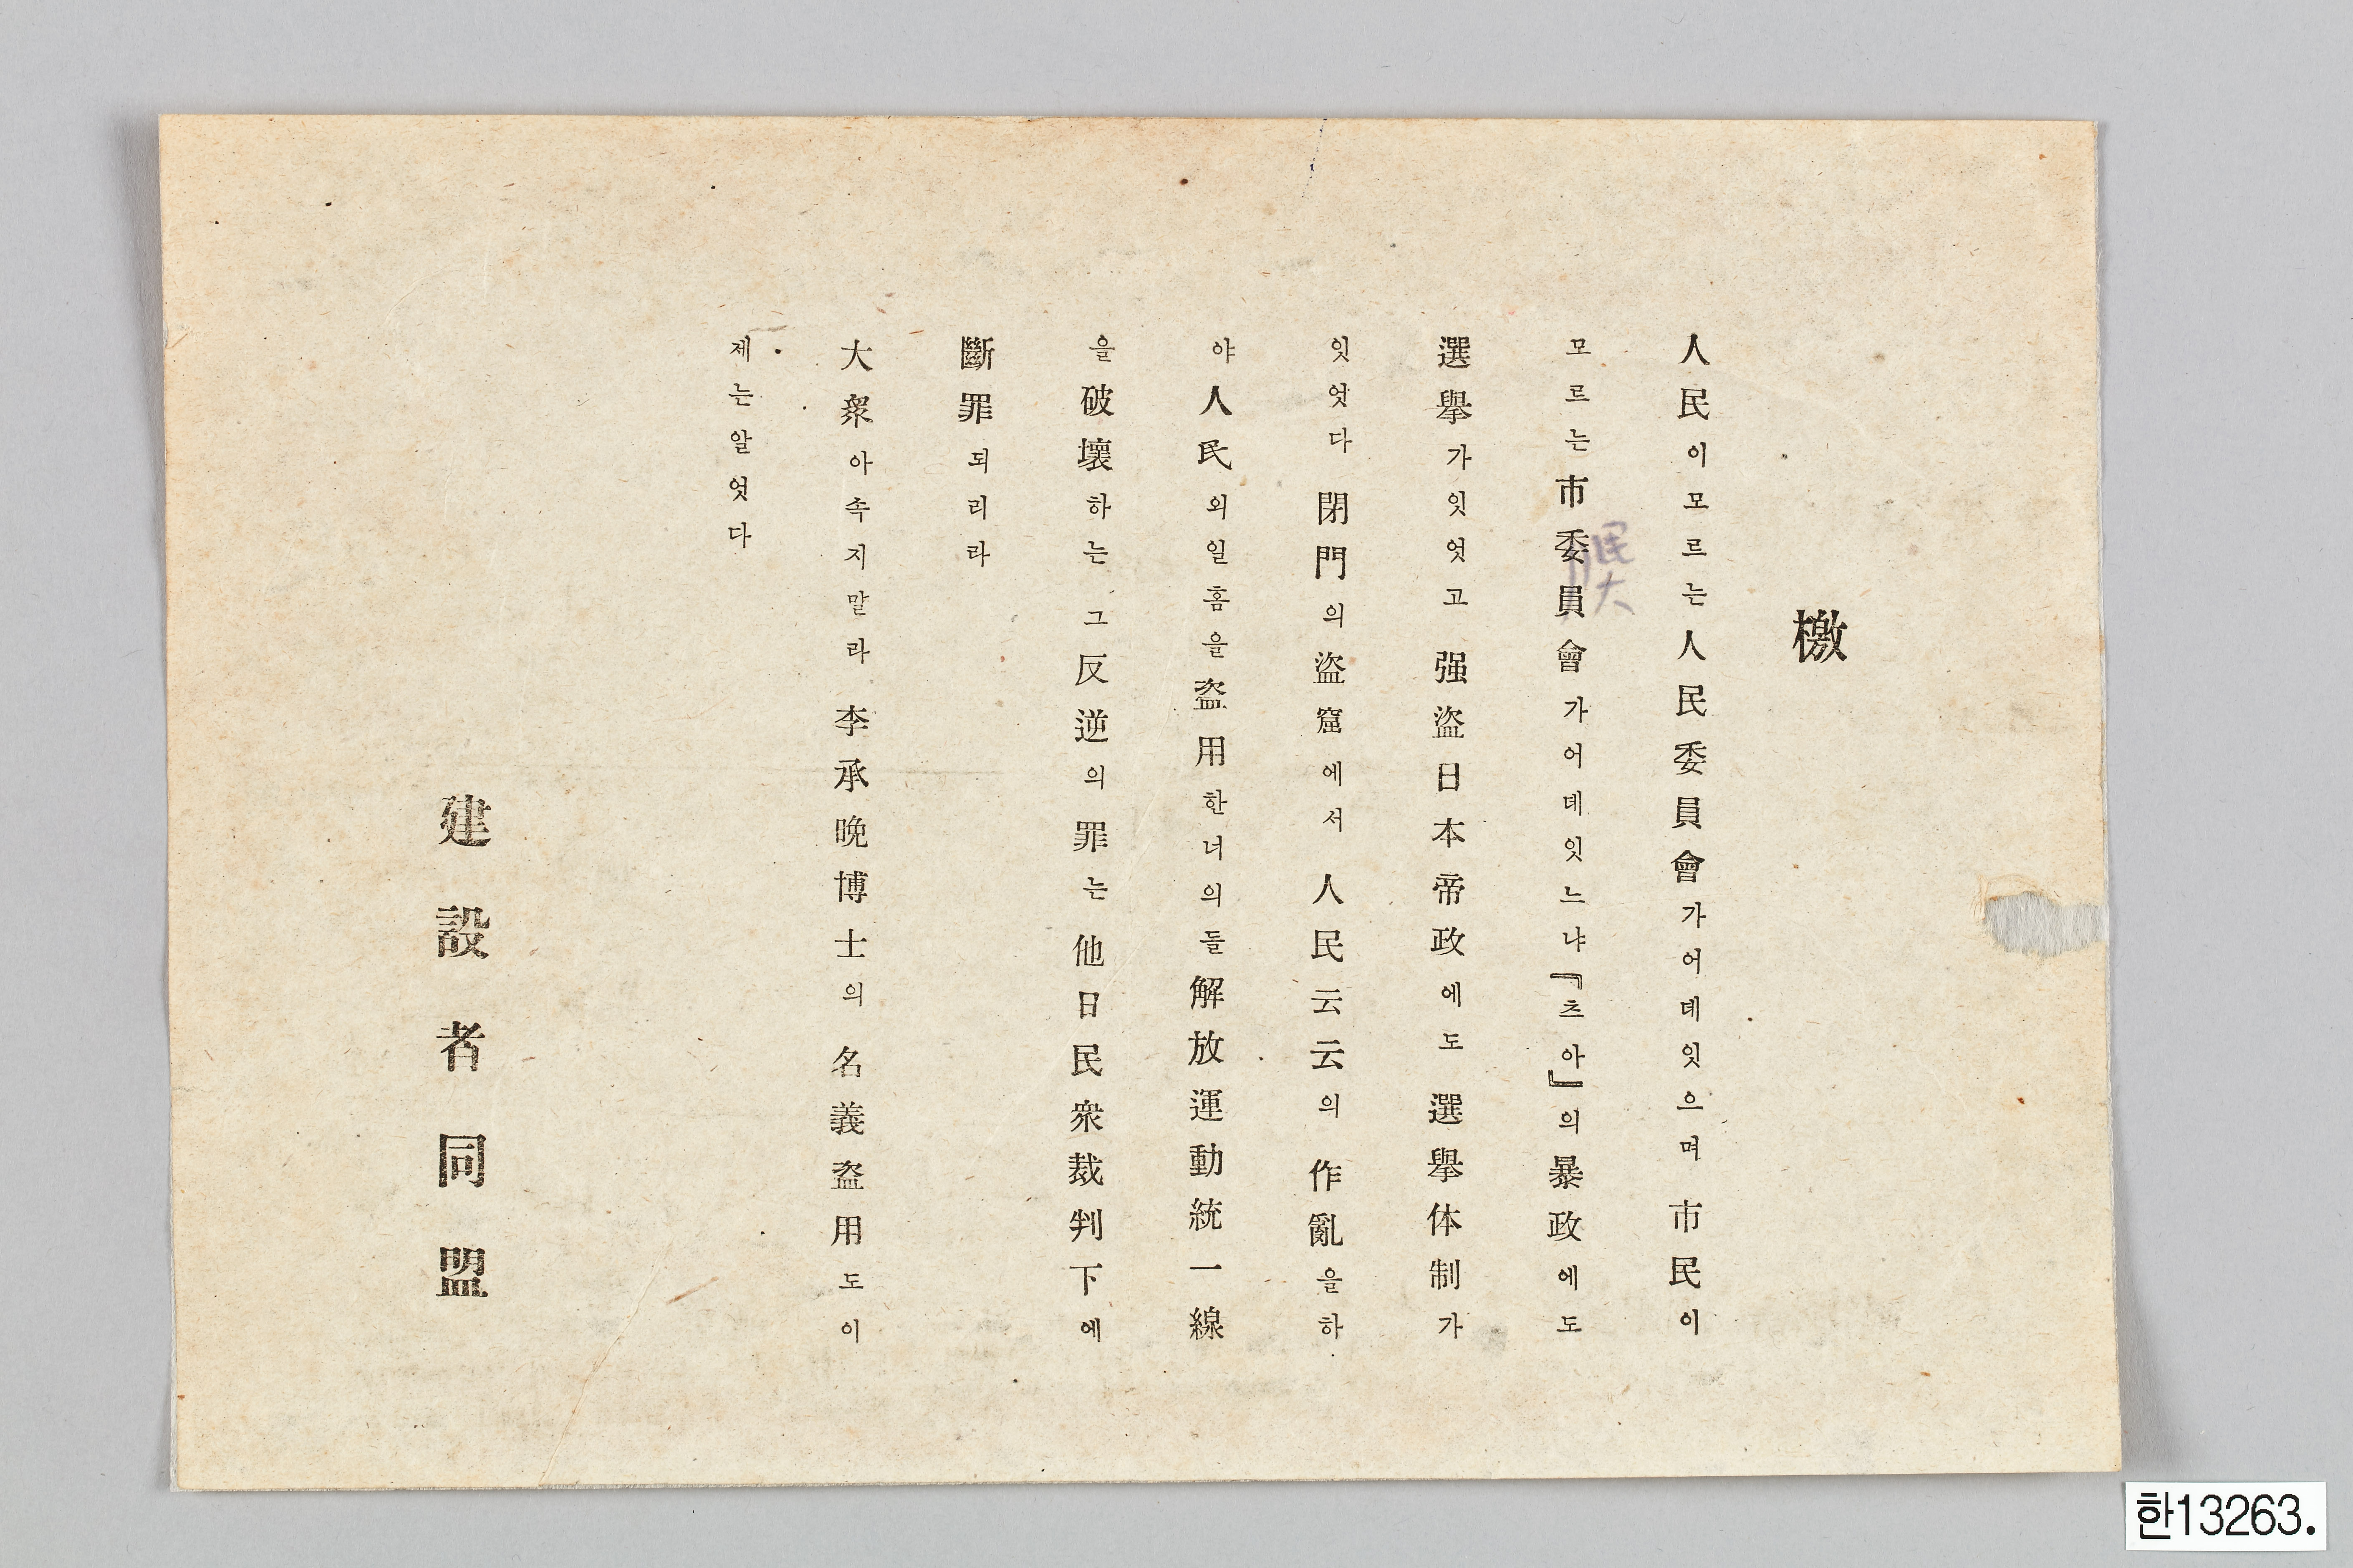 檄
人民이모르는人民委員會가어데잇으며 市民이
모르는市委員會가어데잇느냐『츠아』의暴政에도
選擧가잇엇고 强盜日本帝政에도 選擧体制가
잇엇다 閉門의盜窟에서 人民云云의 作亂을하
야人民의일홈을盜用한너의들解放運動統一線
을破壞하는 그反逆의罪는 他日民衆裁判下에
斷罪되리라
大衆아속지말라 李承晩博士의 名義盜用도이
제는알엇다
建設者同盟
한13263.